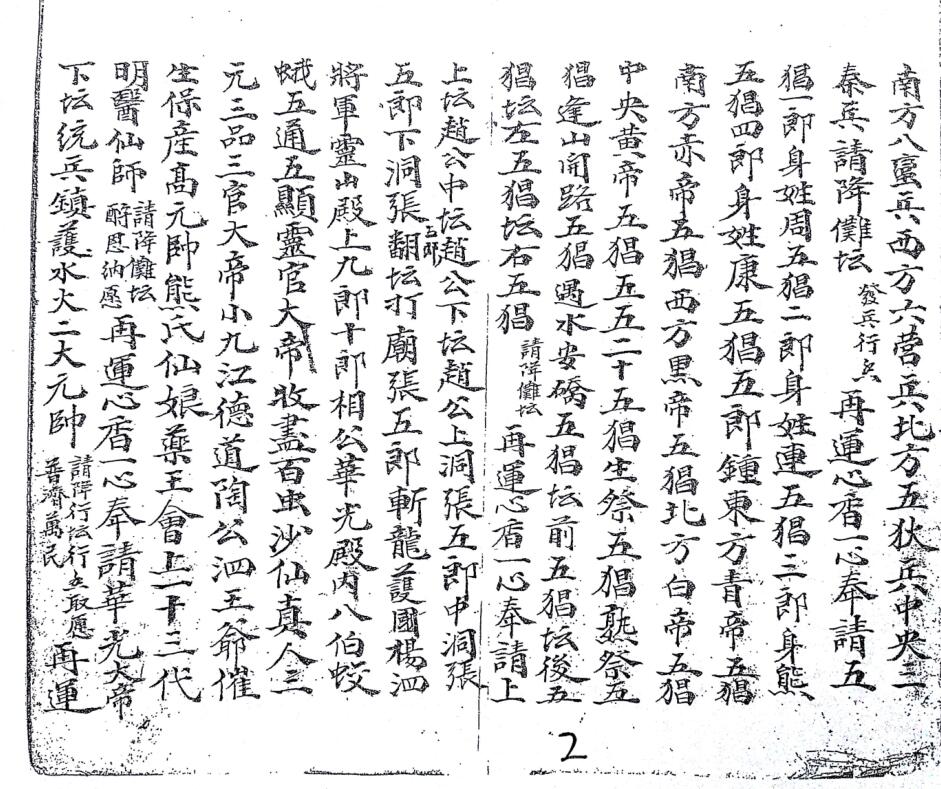 南方八蛮兵西方六营兵北方五狄兵中央三
秦兵請降儺坛發兵行兵再運心香一心奉請五
猖一郎身姓周五猖二郎身姓連五猖三郎身熊
五猖四郎身姓康五猖五郎鍾東方青帝五猖
南方赤帝五猖西方黑帝五猖北方白帝五猖
中央黄帝五猖五五二十五猖生祭五猖熟祭五
猖逢山開路五猖遇水安磽五猖坛前五猖坛後五
猖坛左五猖坛右五猖請降儺坛再運心香一心奉請上
上坛趙公中坛趙公下坛趙公上洞張五郎中洞張
五郎下洞張五郎翻坛打廟張五郎斬龍護國楊泗
將軍靈山殿上九郎十郎相公華光殿内八伯蛟
蛾五通五顯靈官大帝收盡百虫沙仙真人三
元三品三官大帝小九江德道陶公泗王爺催
生保産髙元帥熊氏仙娘藥王會上一十三代
明醫仙師請降儺坛酧恩納愿再運心香一心奉請華光大帝
下坛统兵鎮護水火二大元帥請降行坛行兵取愿普濟萬民再運
2